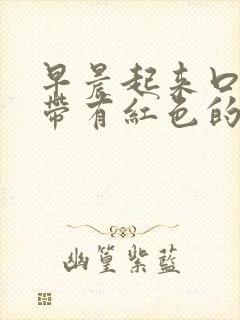 早晨起来口
带有紅色的
幽篁紫藍